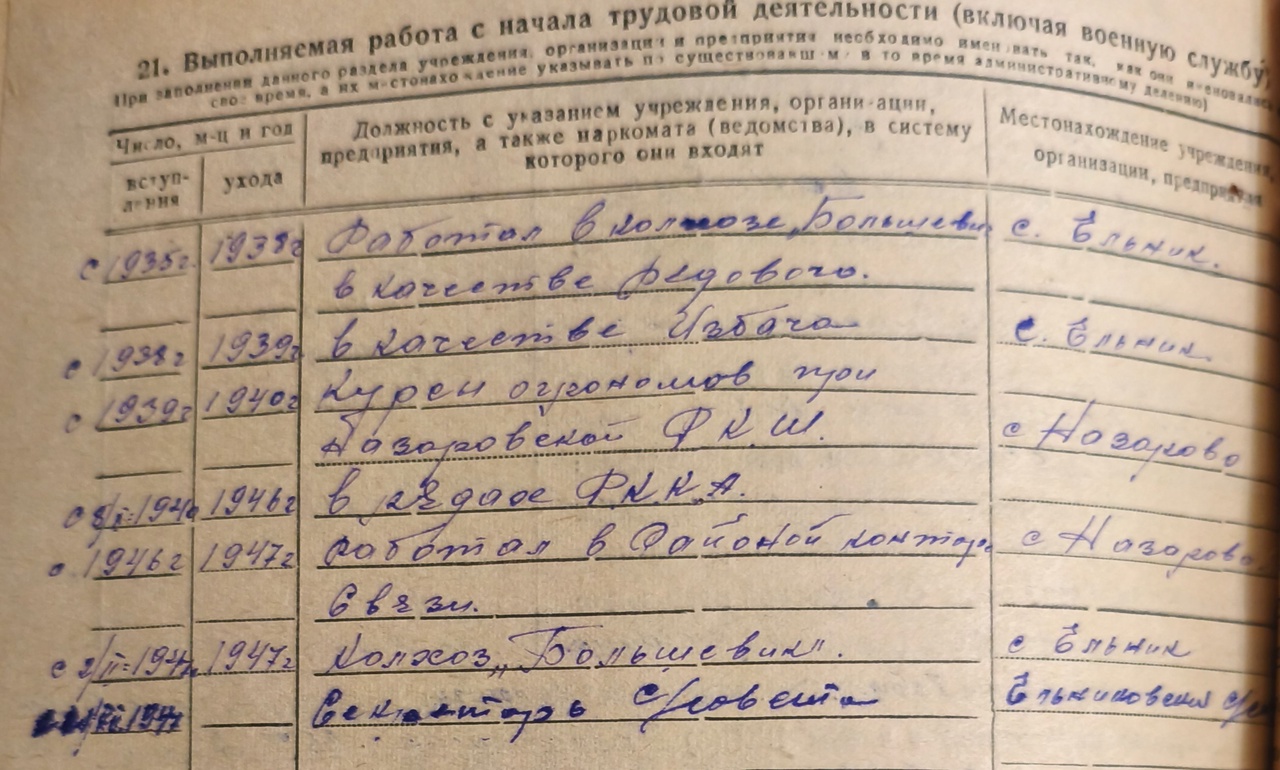 21. Выполняемая работа с начала трудовой деятельности (включая военную службу,
При заполнении данного раздела учреждения, организации и предприятия необходимо именовать так, как они именовались
свое время, а их местонахождение указывать по существовавшему в то время административному делению)
Число, м-ц и год
Должность с указанием учреждения, организации,
предприятия, а также наркомата (ведомства), в систему
которого они входят
Местонахождение учреждения,
организации, предприятия
вступ-
ления
ухода
с 1935г. 1938г Работал в колхозе „Большевик с. Ельник.
в качестве редового.
с 1938г 1939г в качестве Избача с. Ельник.
с 1939г 1940г Курсы агрономов при
Назаровской Р.К.Ш. с Назарово
с 1940 1946г в рядае Р.К.К.А.
с 1946г 1947г работал в Районой конторе с Назарово
Связи.
с 1947 1947г Колхоз „Большевик". с Ельник
1947 Секретарь с/совета Ельниковский с/с